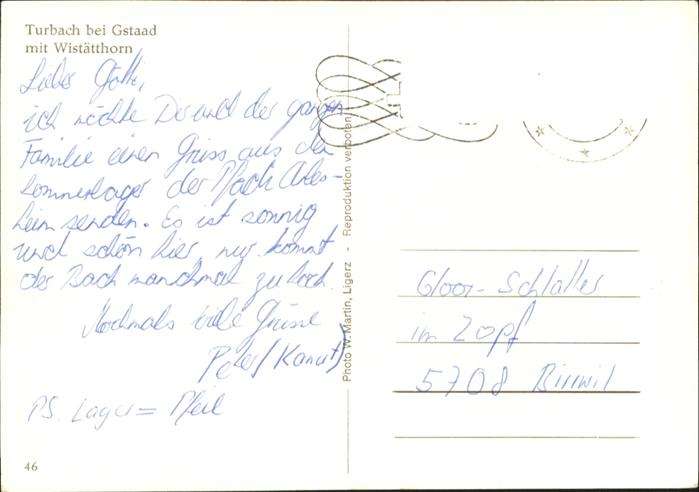 Turbach bei Gstaad
mit Wistätthorn
Lieber Götti,
ich möchte Dir und der ganzen
Familie einen Gruss aus dem
Sommerlager der Pfadi Arles-
heim senden. Es ist sonnig
und schön hier, nur kommt
der Bach manchmal zu hoch.
Nochmals viele Grüsse
Peter (Kanut)
PS. Lager = Pfeil
46
Photo W. Martin, Ligerz - Reproduktion verboten
Gloor-Schlatter
im Zopf
5708 Birrwil